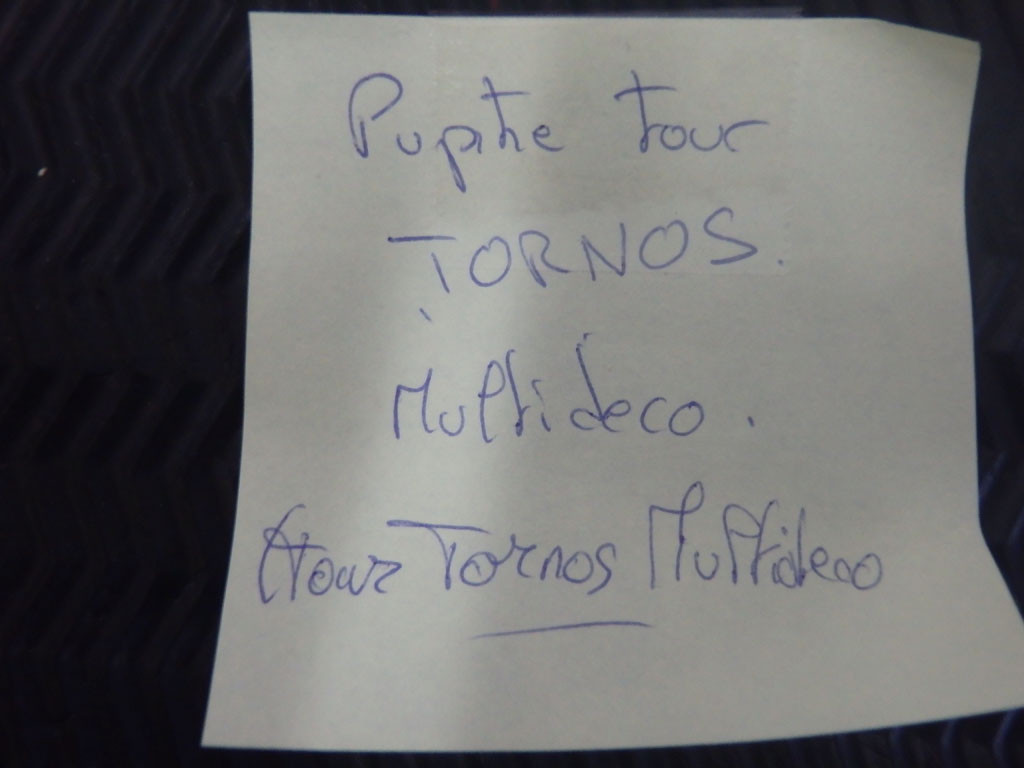 Pupitre tour
TORNOS.
Multideco.
(tour Tornos Multideco